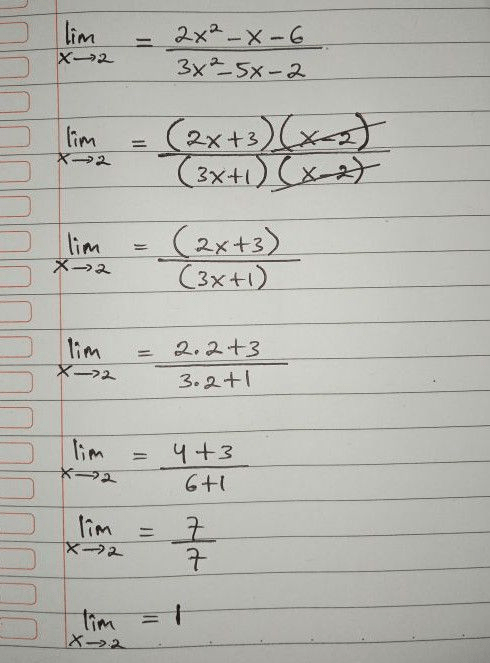 lim x→2 = 2x² - x - 6 / 3x² - 5x - 2
lim x→2 = (2x+3)(x-2) / (3x+1)(x-2)
lim x→2 = (2x+3) / (3x+1)
lim x→2 = 2.2+3 / 3.2+1
lim x→2 = 4+3 / 6+1
lim x→2 = 7 / 7
lim x→2 = 1